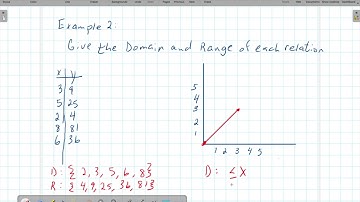 Example 2:
Give the Domain and Range of each relation
x y
3 9
5 25
2 4
8 81
6 36
D: { 2, 3, 5, 6, 8}
R: { 4, 9, 25, 36, 81}
5
4
3
2
1
1 2 3 4 5
D: ≤ x